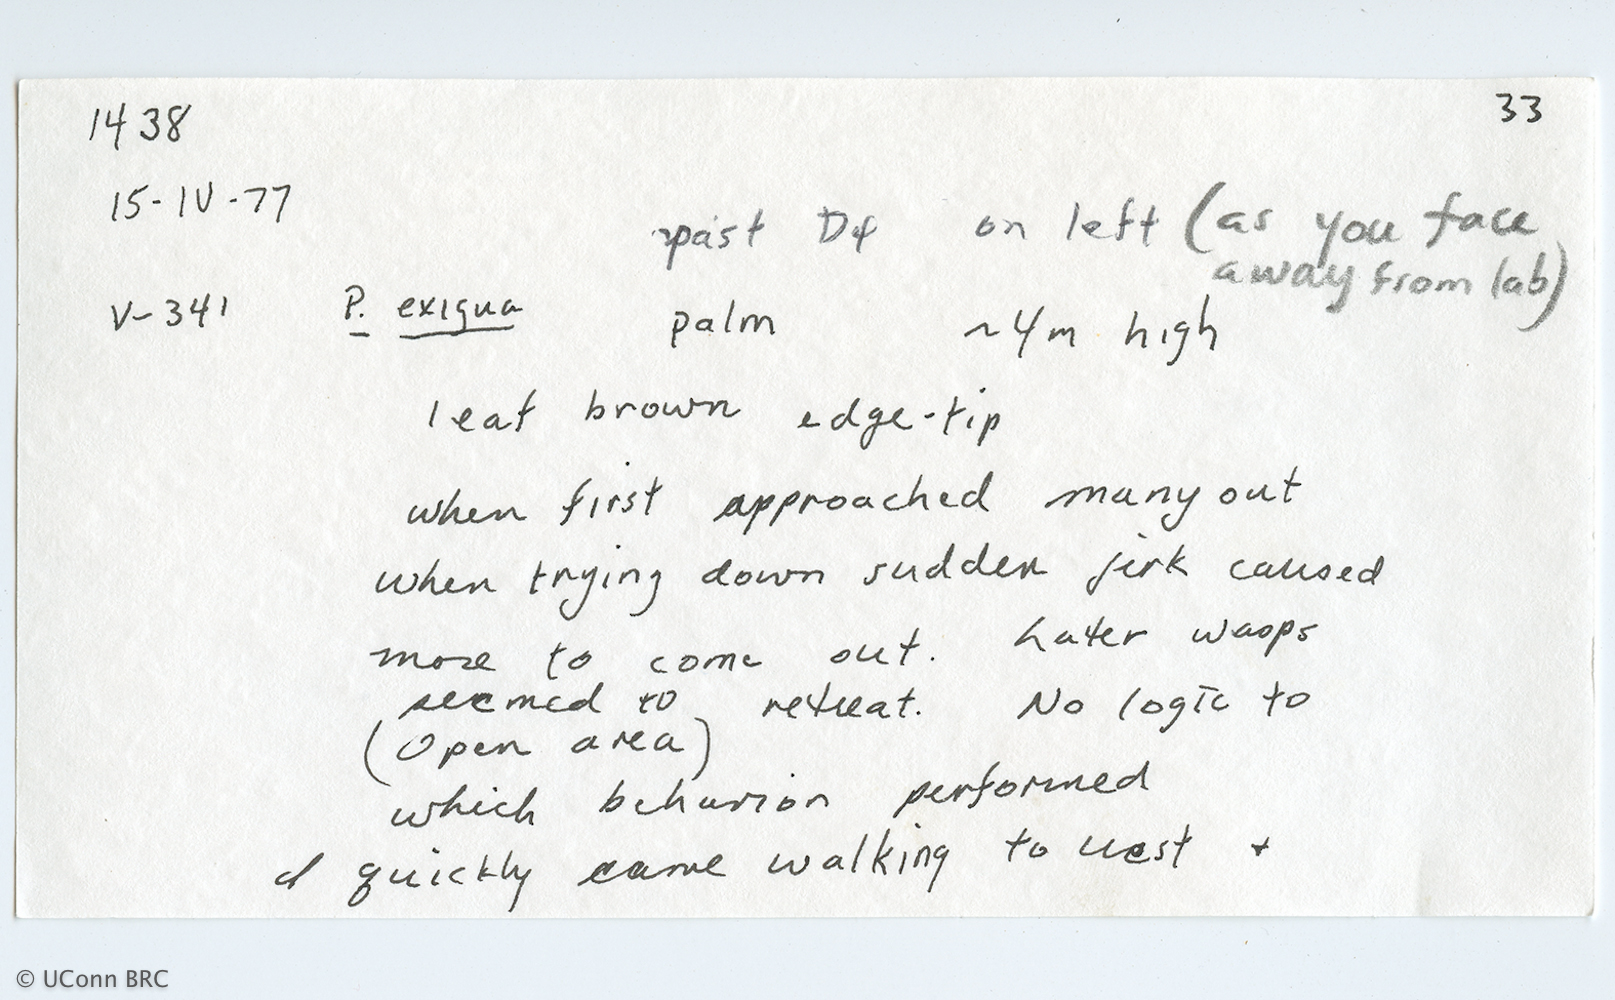 1438
33
15-IV-77
past D4 on left (as you face
away from lab)
V-341 P. exigua palm ~4m high
leaf brown edge-tip
when first approached many out
when trying down sudden jerk caused
more to come out. Later wasps
seemed to retreat. No logic to
(Open area)
which behavior performed
I quickly came walking to nest +
© UConn BRC